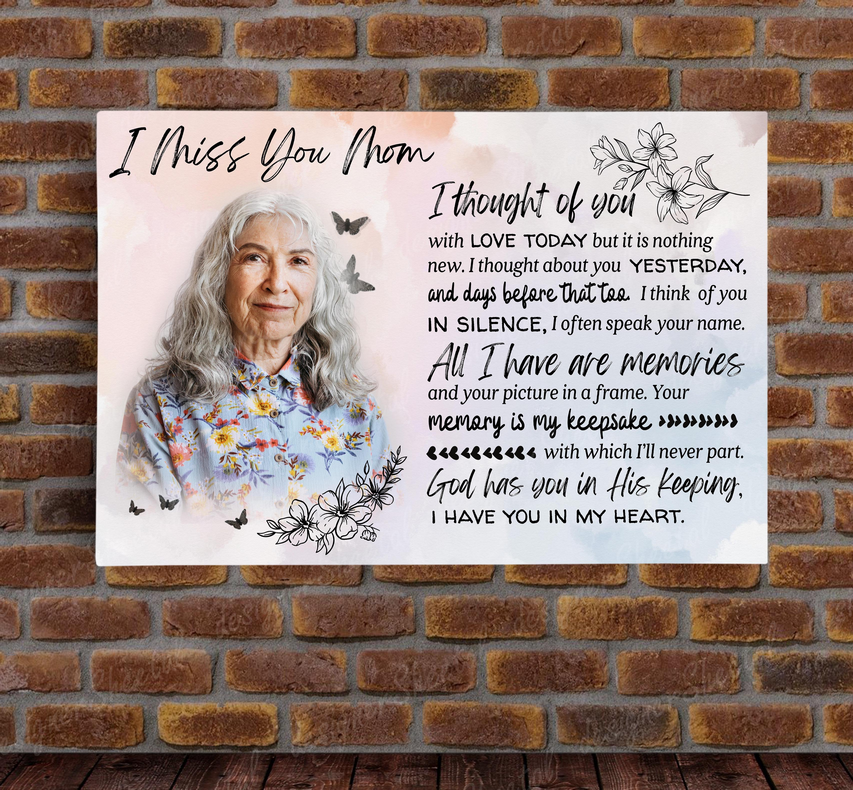 I Miss You Mom
I thought of you
with LOVE TODAY but it is nothing
new. I thought about you YESTERDAY,
and days before that too. I think of you
IN SILENCE, I often speak your name.
All I have are memories
and your picture in a frame. Your
memory is my keepsake
with which I'll never part.
God has you in His Keeping,
I HAVE YOU IN MY HEART.